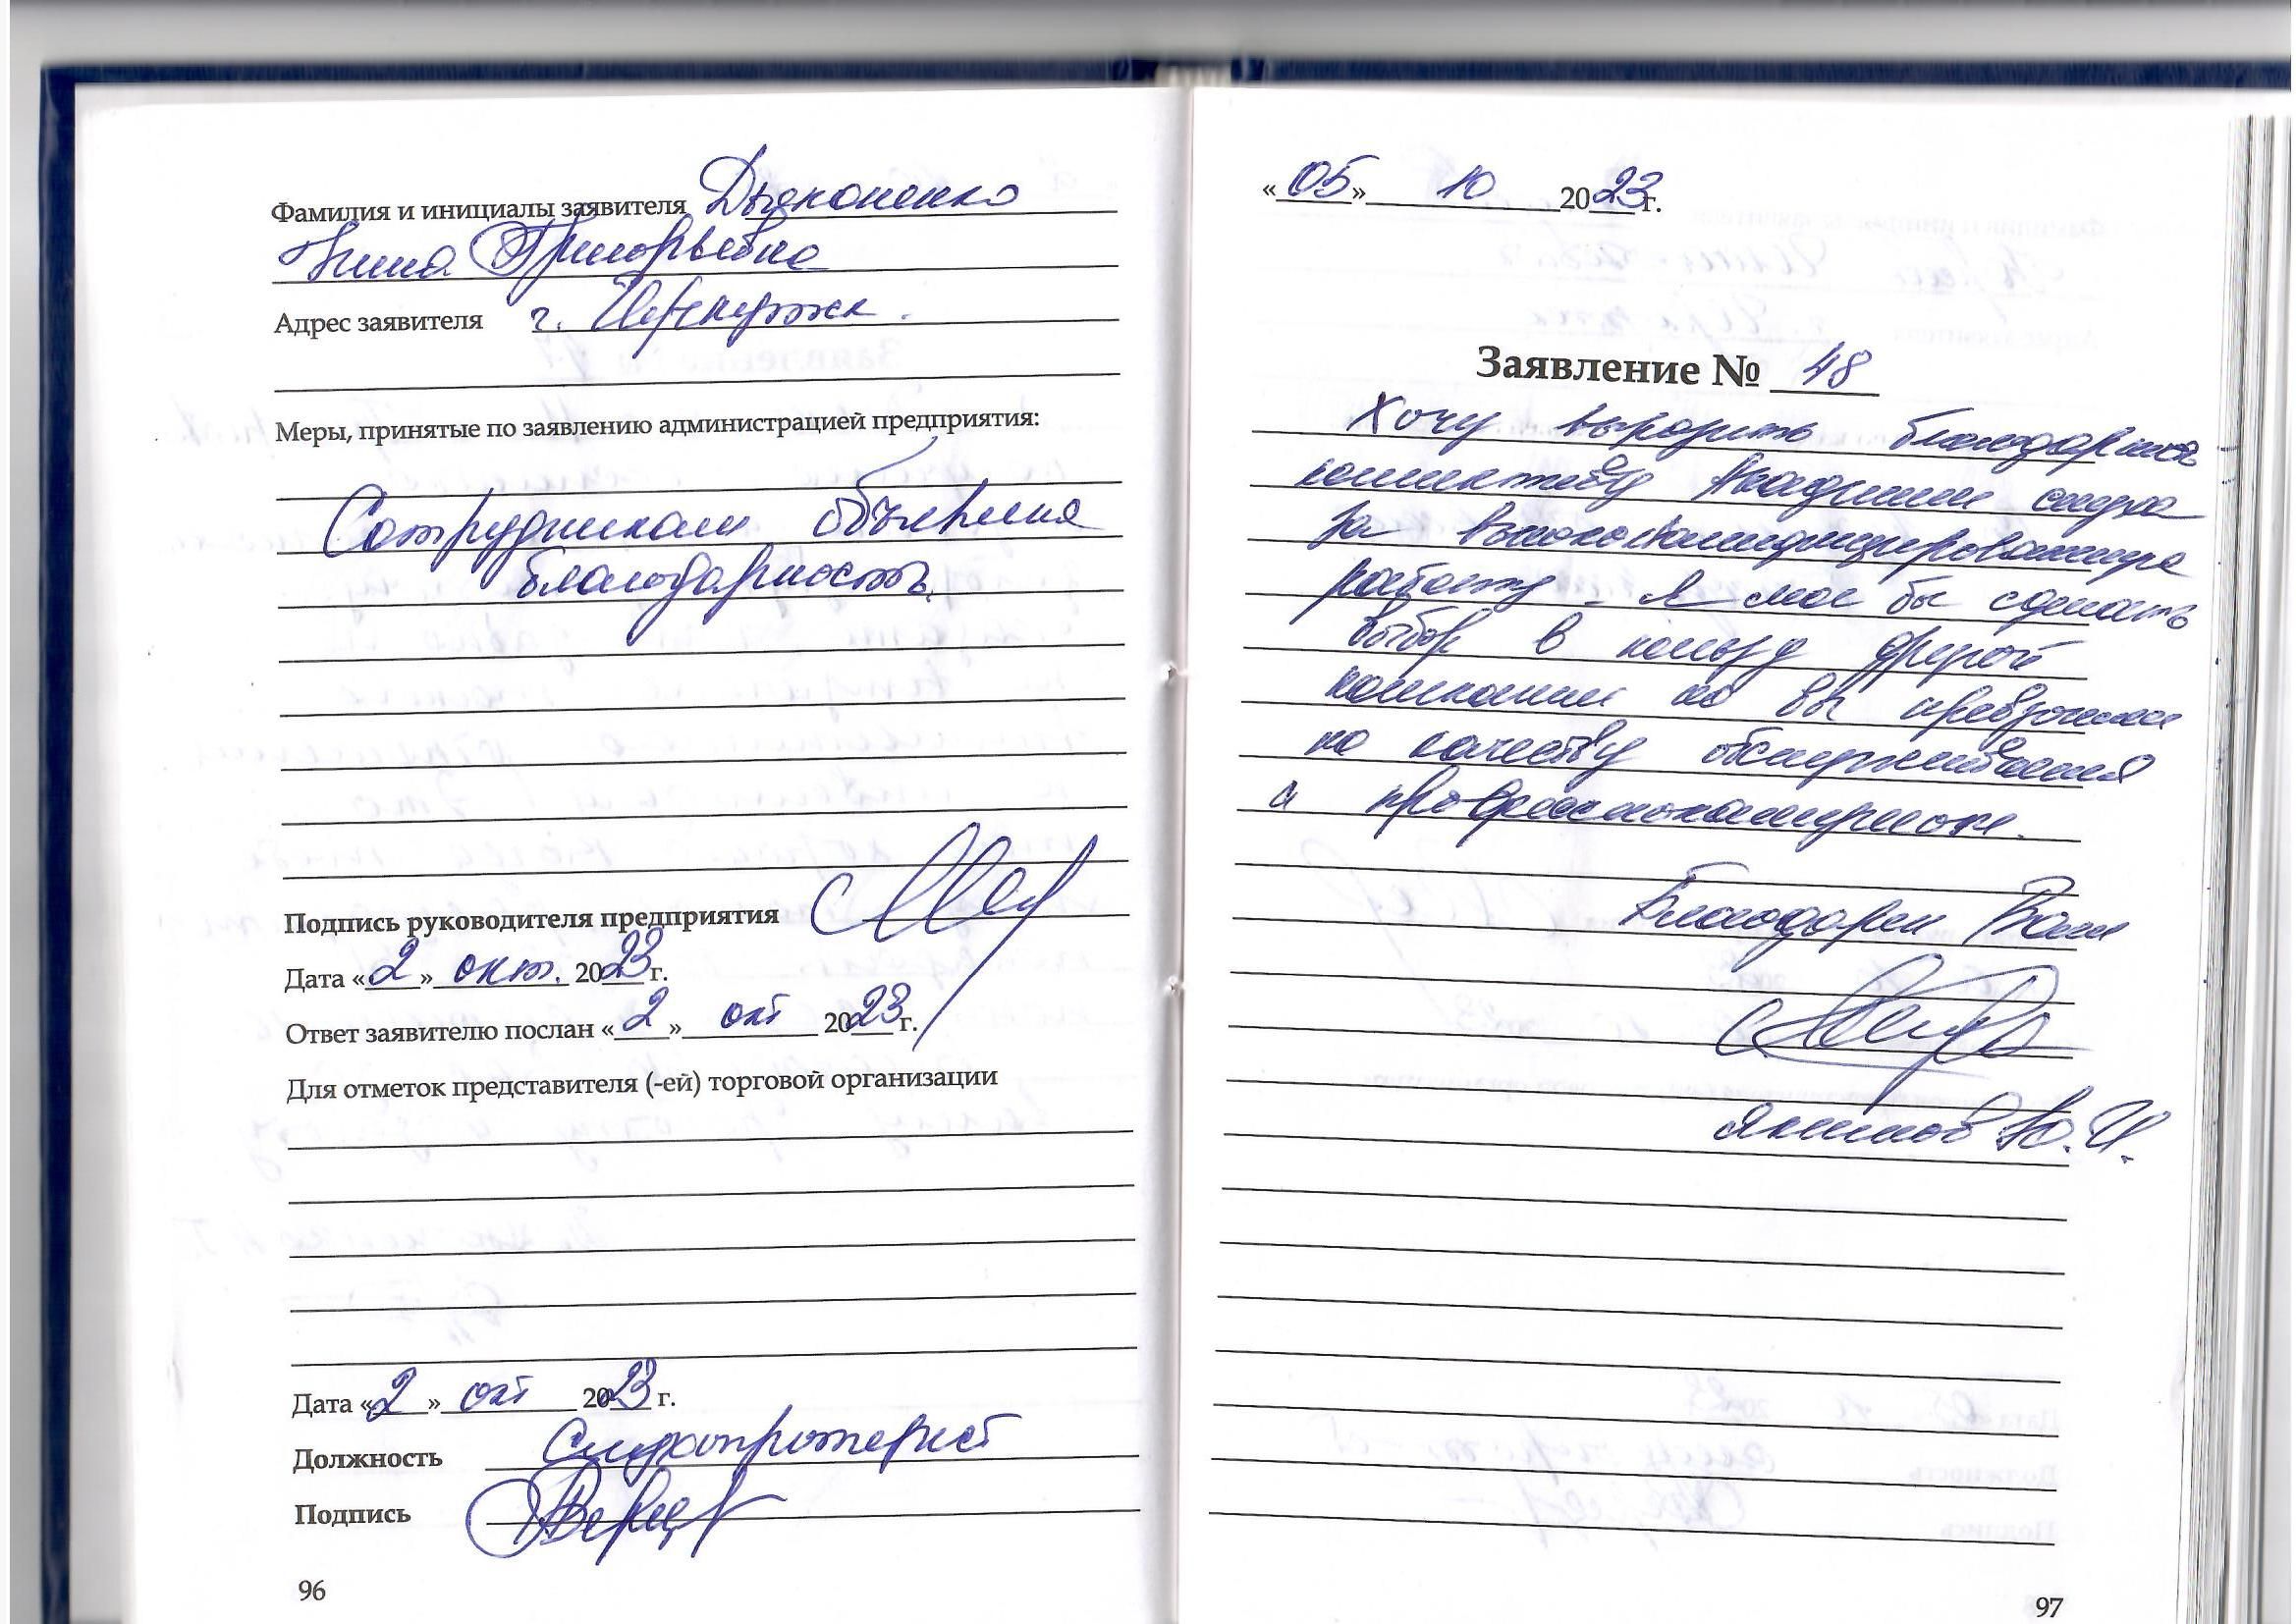 Фамилия и инициалы заявителя Дьяконенко
Нина Григорьевна
Адрес заявителя г.
Меры, принятые по заявлению администрацией предприятия:
Сотрудникам объявлена
благодарность.
Подпись руководителя предприятия
Дата «2» окт. 2023 г.
Ответ заявителю послан «2» окт 2023 г.
Для отметок представителя (-ей) торговой организации
Дата «2» окт 2023 г.
Должность Слухопротезист
Подпись
96
«05» 10 2023 г.
Заявление № 48
Хочу выразить
коллективу Академии слуха
за высококвалифицированную
работу. Я мог бы сделать
выбор в пользу другой
компании но вы
по качеству обслуживания
и
Благодарен Вам
Якимов Ю.И.
97